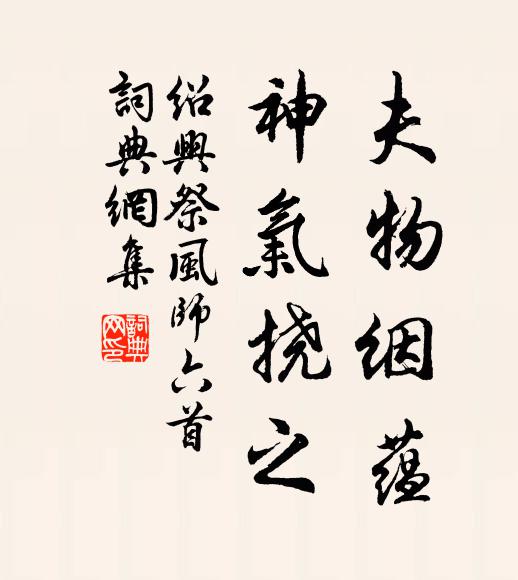 夫物絪蘊
神氣撓之
紹興祭風師六首
詞典網集
詞典网印